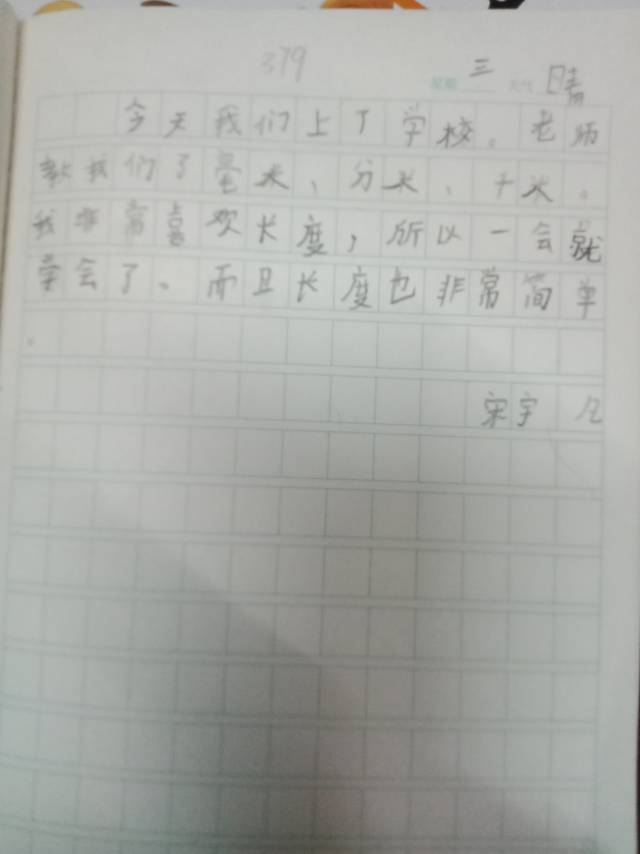 379
星期 三 天气 晴
今天我们上了学校。老师
教我们了毫米、分米、千米。
我非常喜欢长度，所以一会就
学会了。而且长度也非常简单
。
宋宇凡